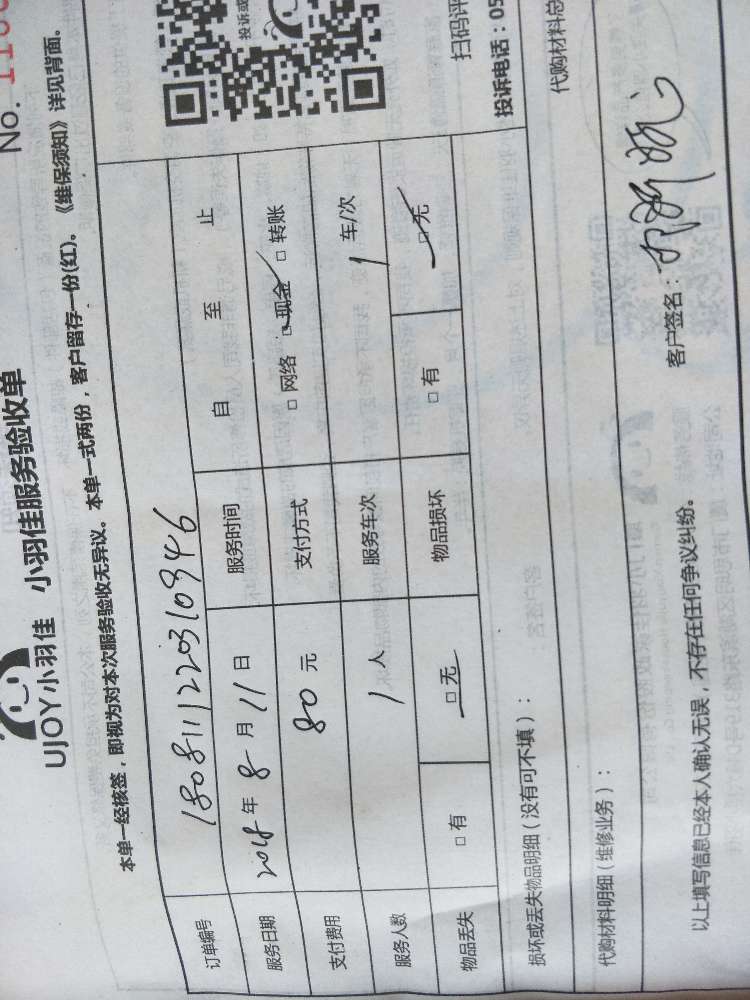 UJOY小羽佳 小羽佳服务验收单
No. 1100
本单一经核签，即视为对本次服务验收无异议。本单一式两份，客户留存一份(红)。《维保须知》详见背面。
订单编号 180811122031 0946
服务日期 2018年8月11日 服务时间 自 至 止
支付费用 80元 支付方式 □网络 □现金 □转账
服务人数 1人 服务车次 1车/次
物品丢失 □有 □无 物品损坏 □有 □无
投诉或
扫码评
投诉电话：05
损坏或丢失物品明细（没有可不填）：
代购材料明细（维修业务）： 代购材料总
以上填写信息已经本人确认无误，不存在任何争议纠纷。 客户签名：